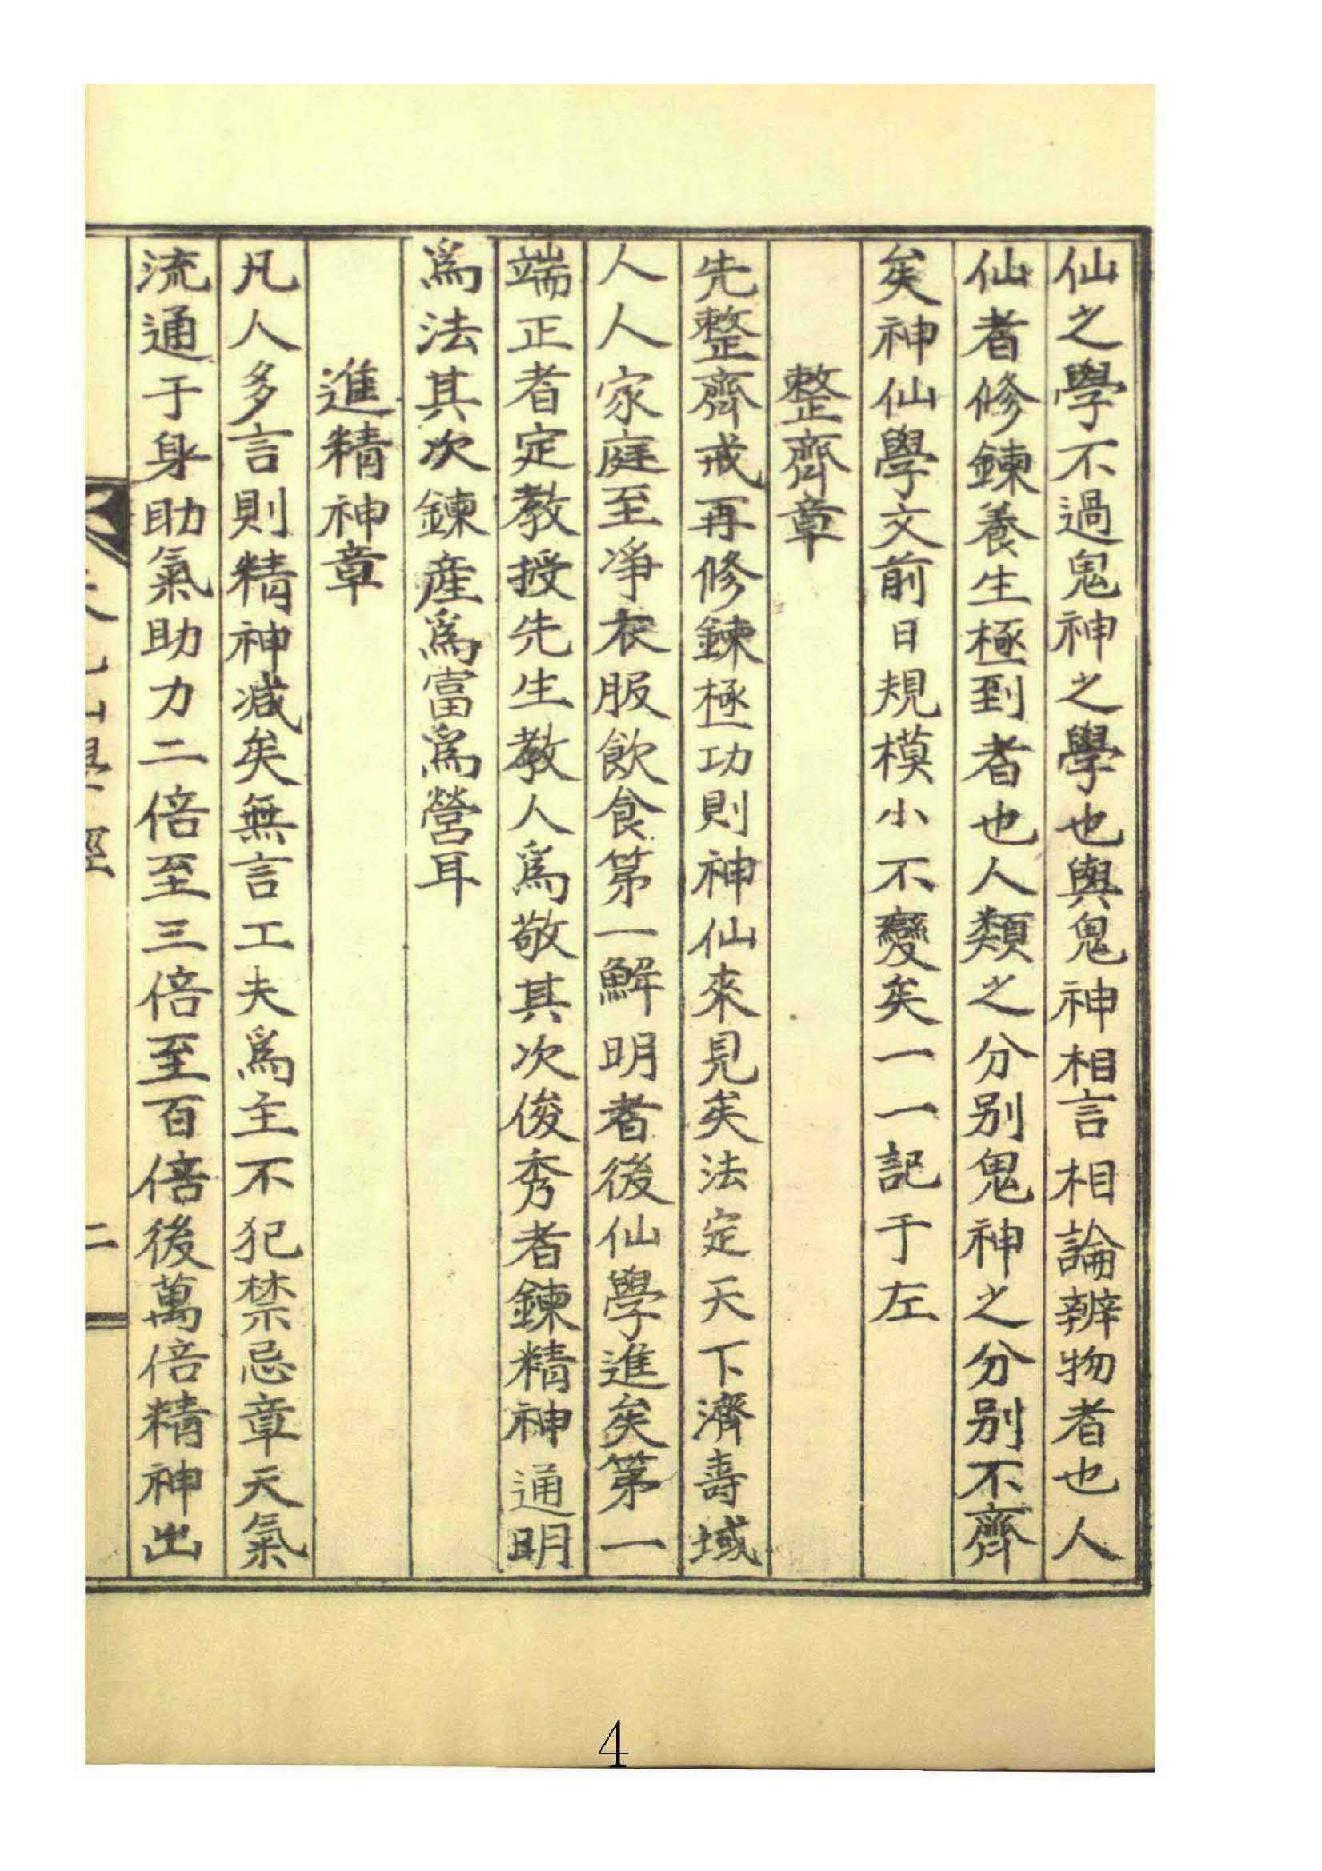 仙之學不過鬼神之學也與鬼神相言相論辨物者也人
仙者修鍊養生極到者也人類之分别鬼神之分别不齊
矣神仙學文前日規模小不變矣一一記于左
整齊章
先整齊戒再修鍊極功則神仙來見矣法定天下濟壽域
人人家庭至凈衣服飮食第一解明者後仙學進矣第一
端正者定教授先生教人爲敬其次俊秀者鍊精神通明
爲法其次鍊産爲富爲營耳
進精神章
凡人多言則精神减矣無言工夫爲主不犯禁忌章天氣
流通于身助氣助力二倍至三倍至百倍後萬倍精神出
二
4